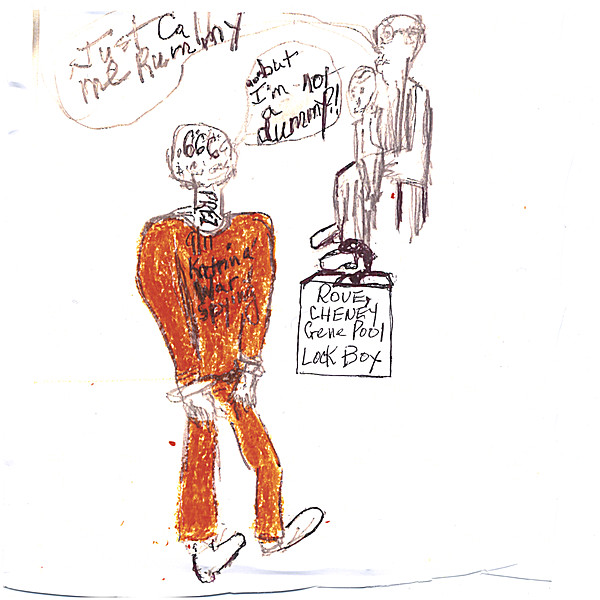 Just Ca
me Rummy
...but
I'm not
a
dummy!!
666
PREZ
Katrina
War
Spying
ROVE,
CHENEY
Gene Pool
Lock Box